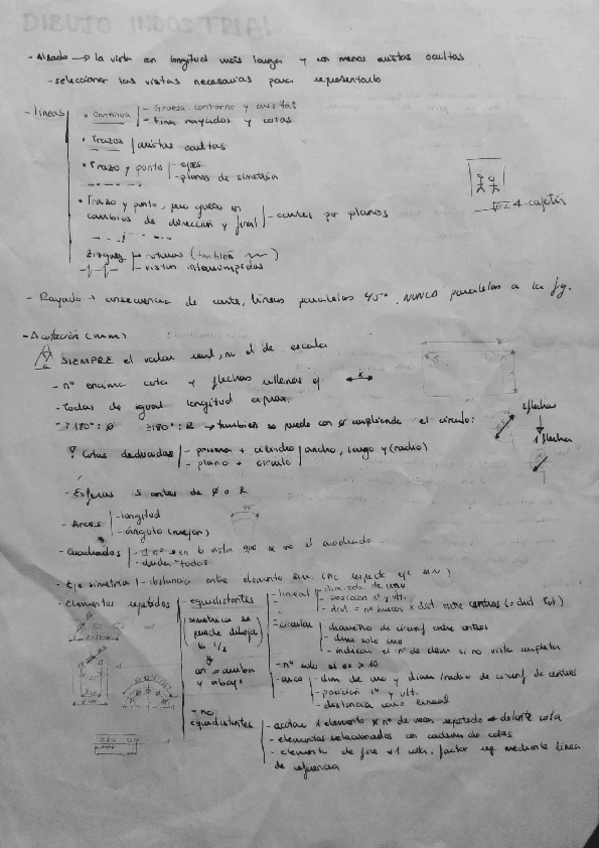 DIBUJO INDUSTRIAL
- Alzado → la vista con longitud más larga y con menos aristas ocultas
- seleccionar las vistas necesarias para representarlo
- líneas
• Continua - Gruesa contorno y aristas
- Fina rayados y cotas
• Trazos aristas ocultas
• Trazo y punto - ejes
- planos de simetría
• Trazo y punto, pero grueso en cambios de dirección y final - cortes por planos
Zigzag - roturas (también ~)
- vistas interrumpidas
4-cajetín
- Rayado → consecuencia de corte, líneas paralelas 45°. NUNCA paralelas a la fig.
- Acotación (mm)
SIEMPRE el valor real, no el de escala
- nº encima cota y flechas rellenas ej
- Todas de igual longitud aprox.
≥180°: R → también se puede con Ø ampliando el círculo:
2 flechas
1 flecha
Cotas deducidas - prisma + cilindro ancho, largo y (radio)
- plano + círculo
- Esferas S antes de Ø o R
- Arcos - longitud
- ángulo (mejor)
- Cuadrados - 1 nº en la vista que se ve el cuadrado
- dudar todas
- Eje simetría - distancia entre elemento sim. (no respecto eje sim)
- Elementos repetidos
- equidistantes
simétrica se puede dibujar la 1/2
con arriba y abajo
- lineal - dim. solo de uno
- posición 1º y últ.
- dist = nº huecos x dist. entre centros (= dist tot)
- circular diámetro de circunf entre centros
- dim solo uno
- indicar el nº de elem si no vista completa
- nº solo si es > 10
- arco - dim de uno y diam/radio de circunf de centros
- posición 1º y últ.
- distancia como lineal
- no equidistantes
- acotar 1 elemento x nº de veces repetido delante cota
- elementos relacionados con cadena de cotas
mediante línea de referencia